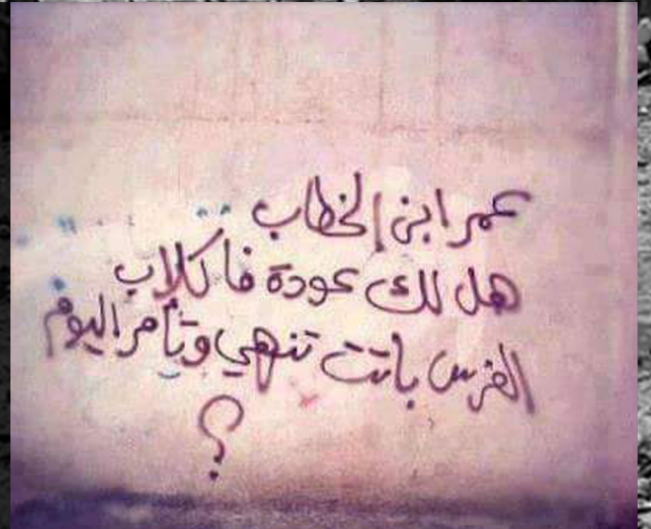 عمر ابن الخطاب ..
هل لك عودة فا كلاب
الفرس باتت تنهي وتأمر اليوم
؟